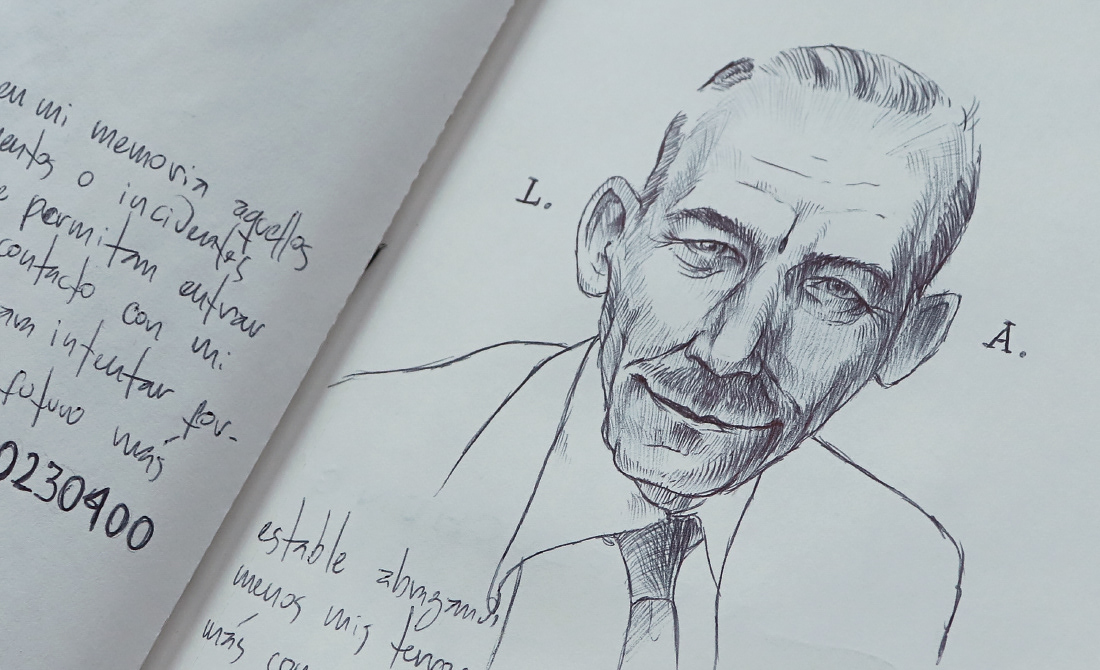 en mi memoria aquellos
o incidentes
permitan entrar
contacto con mi
intentar for-
futuro más
0230400
L.
A.
estable
menos mis
más